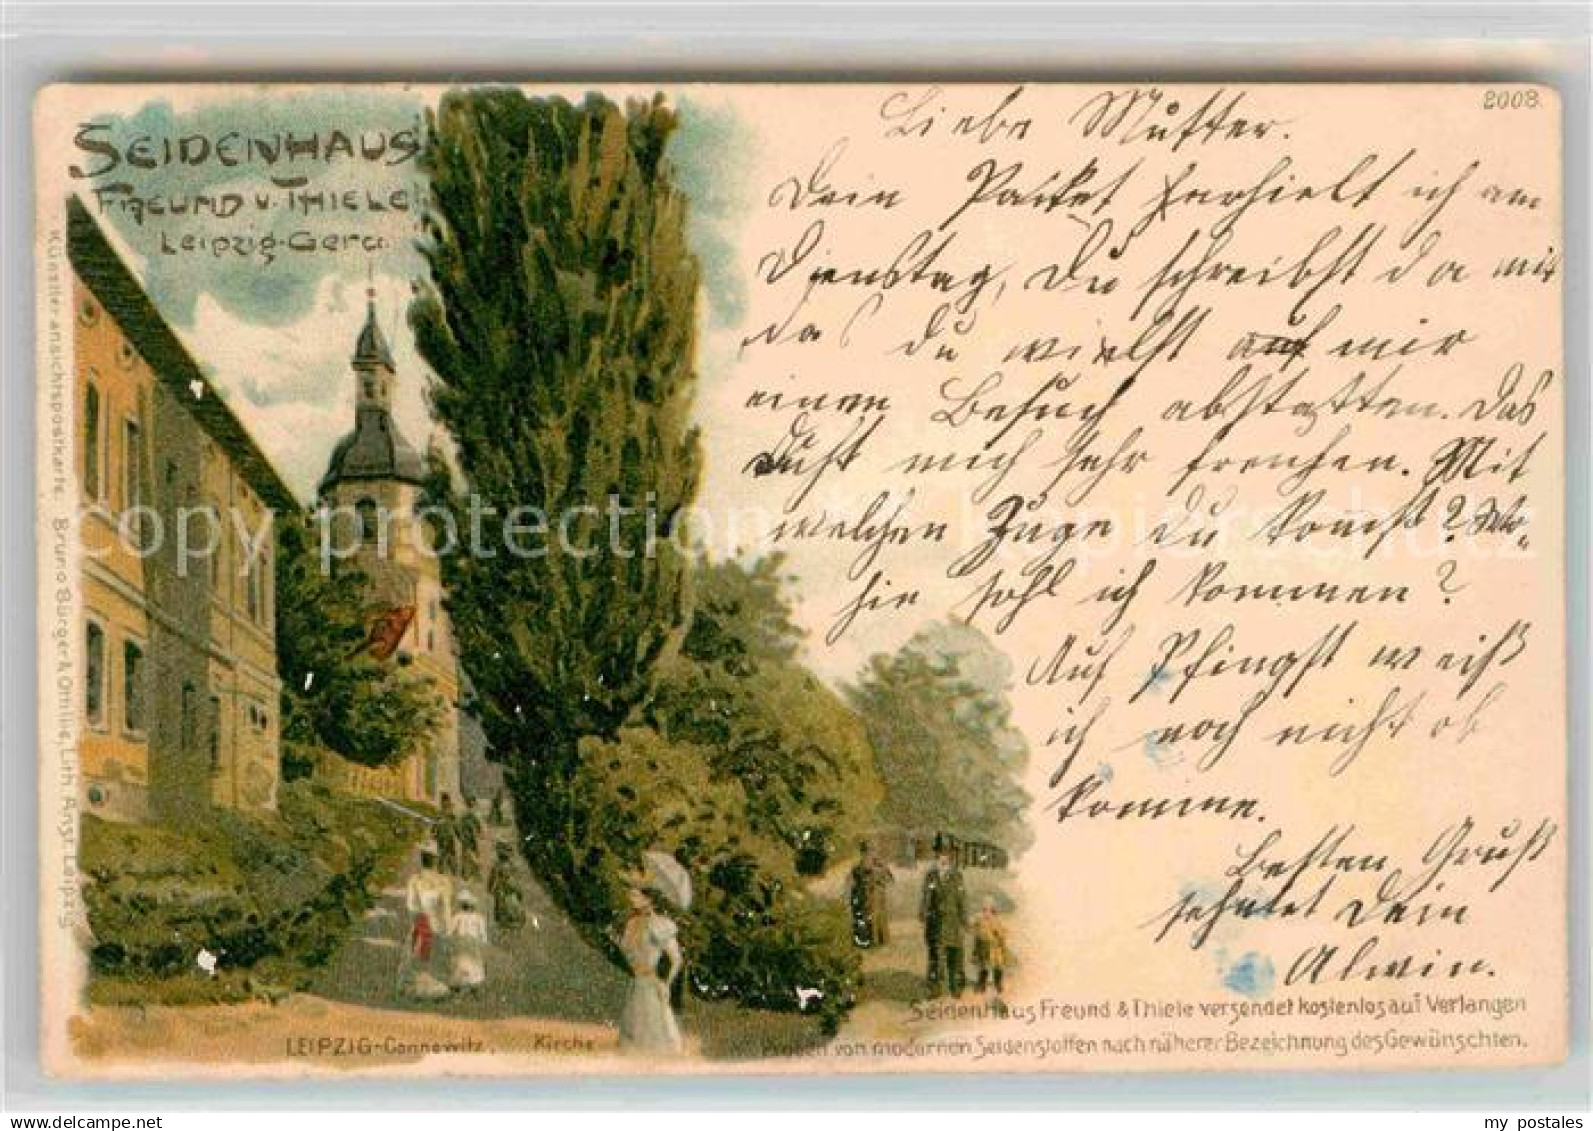 2008.
SEIDENHAUS
FREUND u. THIELE
Leipzig-Gera
Künstleransichtspostkarte. Bruno Bürger & Ottillie, Lith. Anst. Leipzig
Liebe Mutter.
Dein Packet erhielt ich am
Dienstag, Du schreibst da mir
das du willst auf mir
einen Besuch abstatten. Das
mich sehr freuhen. Mit
welchen Zuge Du komst? Wo-
hin sohl ich kommen?
Auf Pfingst weiß
ich noch nicht ob
komme.
Besten Gruß
sehntet Dein
Alwin.
Seidenhaus Freund & Thiele versendet kostenlos auf Verlangen
Proben von modernen Seidenstoffen nach näherer Bezeichnung des Gewünschten.
LEIPZIG-Connewitz, Kirche
copy protection * kopierschutz
my postales